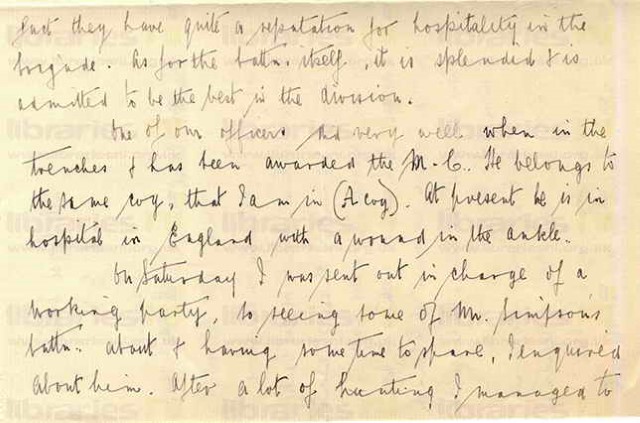 fact they have quite a reputation for hospitality in the
brigade. As for the battn. itself, it is splendid & is
admitted to be the best in the division.
One of our officers did very well when in the
trenches & has been awarded the M.C. He belongs to
the same coy, that I am in (A coy). At present he is in
hospital in England with a wound in the ankle.
On Saturday I was sent out in charge of a
working party, so seeing some of Mr. Simpson's
battn. about & having some time to spare, I enquired
about him. After a lot of hunting I managed to
libraries
libraries
libraries
libraries